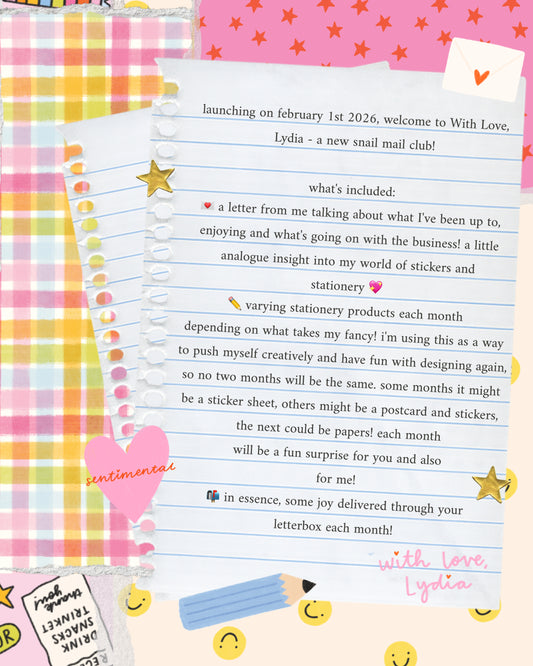 launching on february 1st 2026, welcome to With Love,
Lydia - a new snail mail club!
what's included:
💌 a letter from me talking about what I've been up to,
enjoying and what's going on with the business! a little
analogue insight into my world of stickers and
stationery 💖
✏️ varying stationery products each month
depending on what takes my fancy! i'm using this as a way
to push myself creatively and have fun with designing again,
so no two months will be the same. some months it might
be a sticker sheet, others might be a postcard and stickers,
the next could be papers! each month
will be a fun surprise for you and also
for me!
📬 in essence, some joy delivered through your
letterbox each month!
sentimental
with love,
Lydia
thank you!
TRINKET
SNACKS
DRINK